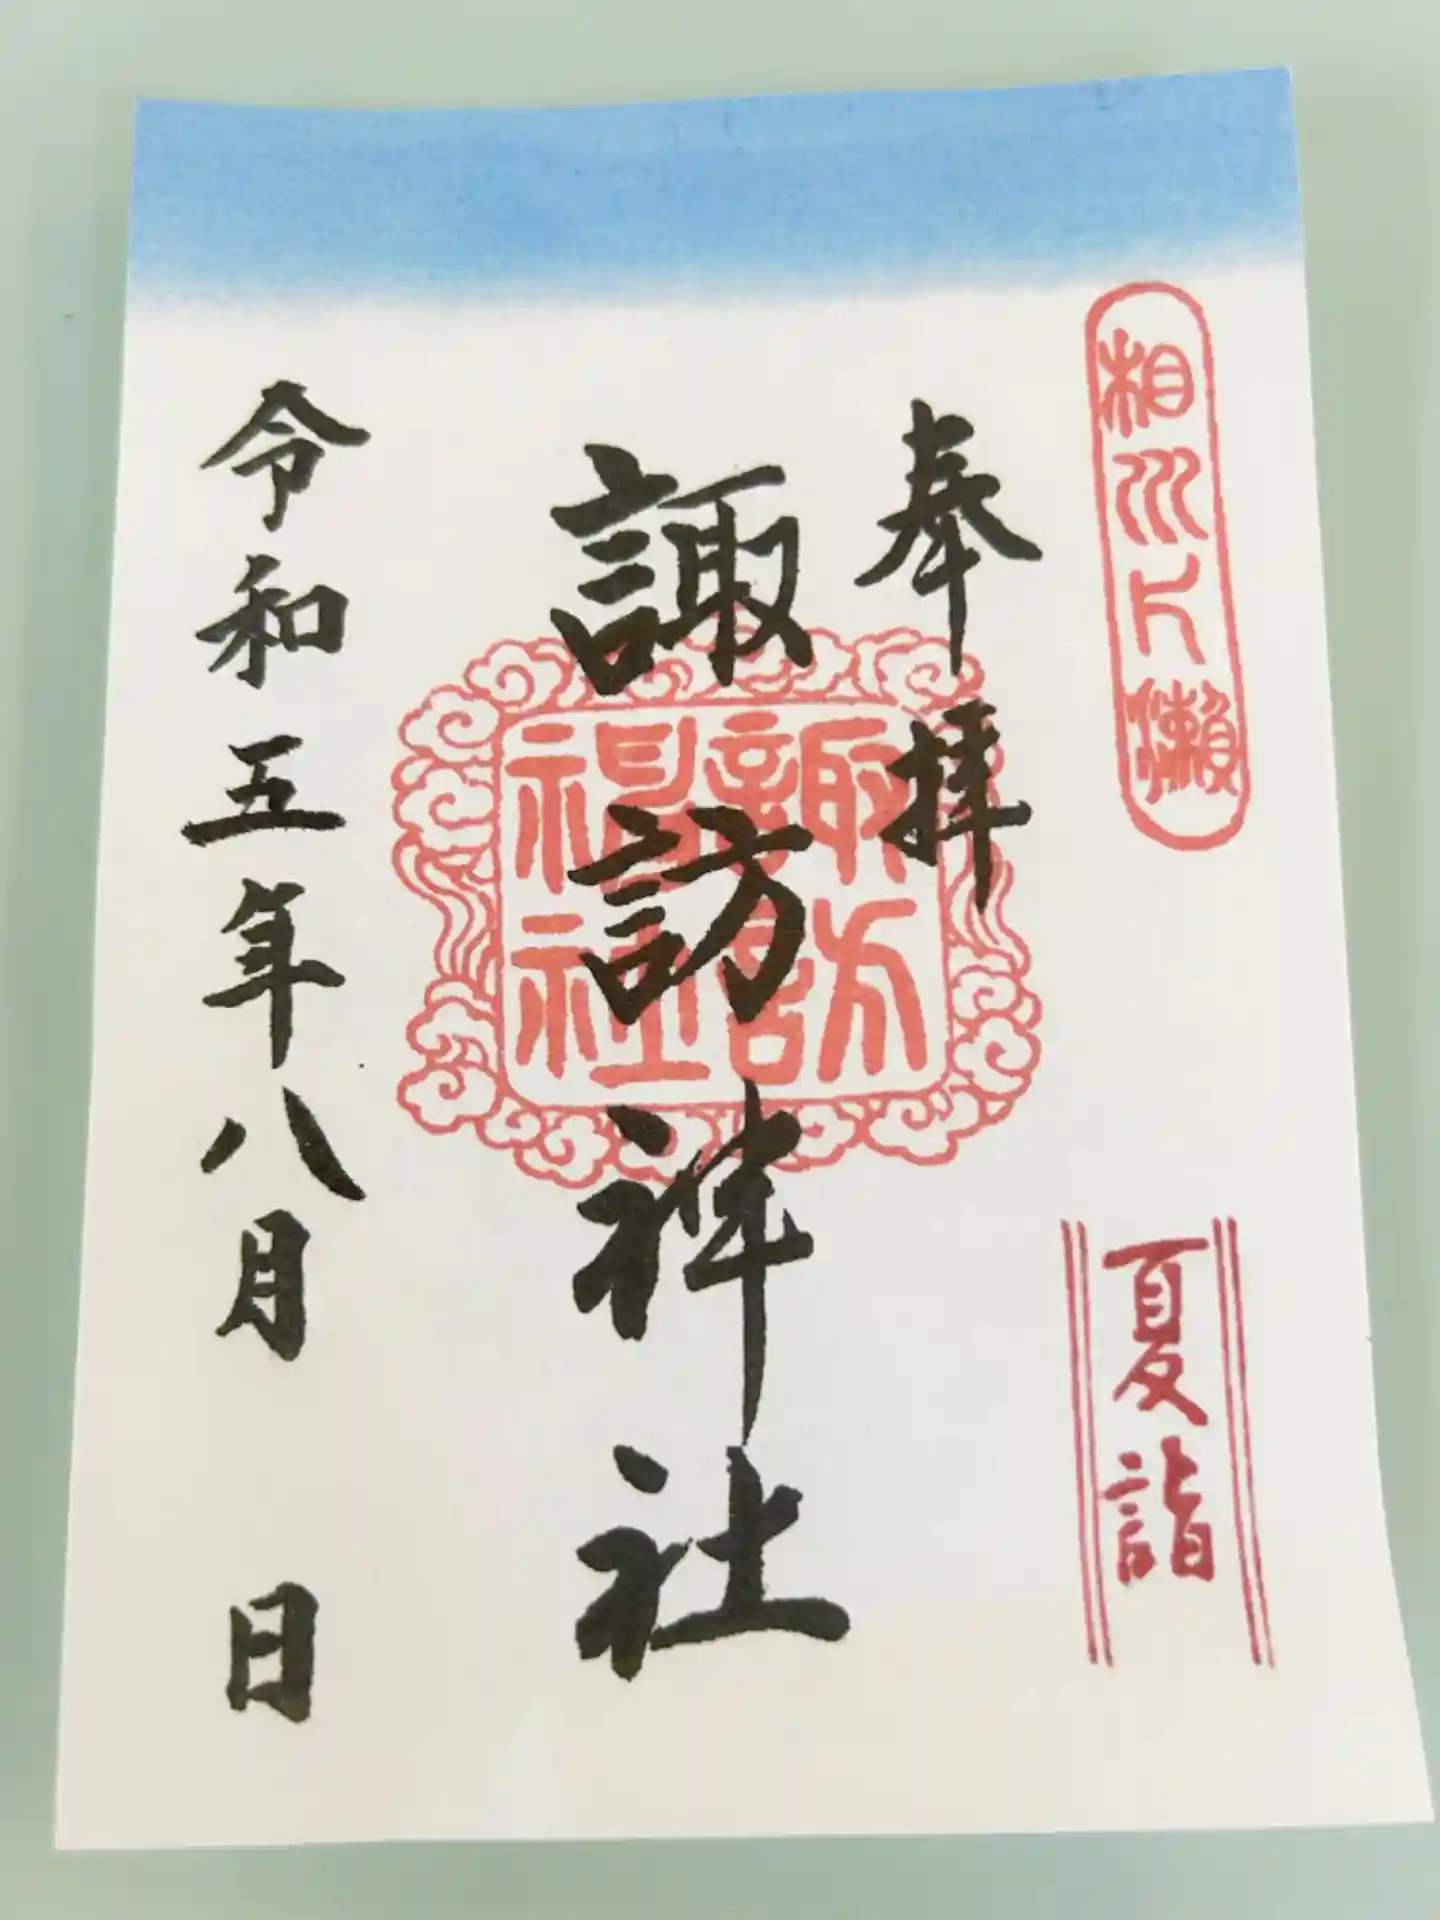 相州片瀬
夏詣
奉拝
諏訪神社
諏訪
神社
令和五年八月 日